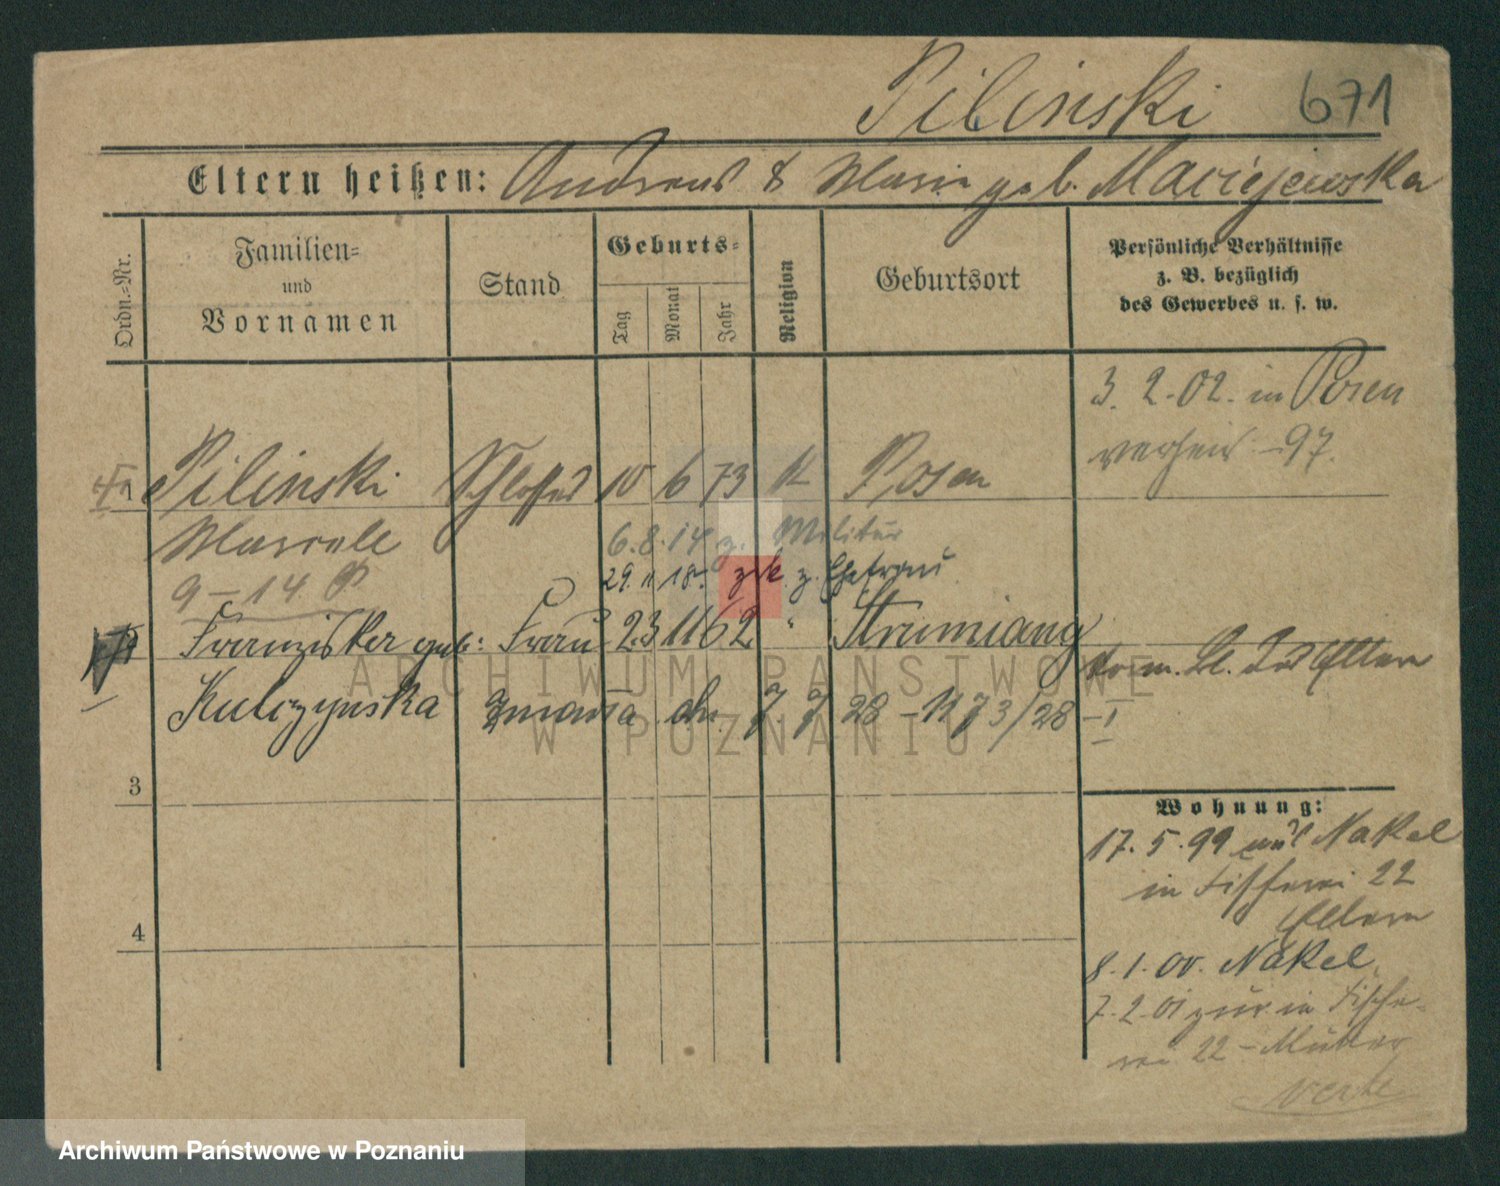 Pilinski 671
Eltern heißen: Andreas & Marie geb. Maciejewska
Ordn.=Nr.
Familien=
und
Vornamen
Stand
Geburts=
Tag
Monat
Jahr
Religion
Geburtsort
Persönliche Verhältnisse
z. B. bezüglich
des Gewerbes u. s. w.
3. 2.02. in Posen
verheir. 97.
1 Pilinski Schlosser 10 6 73 K Posen
Marcell
6.8.14 z. Militär
29. 11 18. zrk. z. Ehefrau
9 - 14 P
Franziska geb: Frau 23 11 62 " Strumiany
Kulczynska 28 - 1173/28 - I
Eltern
3
4
Wohnung:
17. 5. 99 Nakel
in Fischerei 22
Eltern
8. 1. 00. Nakel
7. 2. 01 zur in Fische-
rei 22 - Mutter
verte
ARCHIWUM PAŃSTWOWE
W POZNANIU
Archiwum Państwowe w Poznaniu